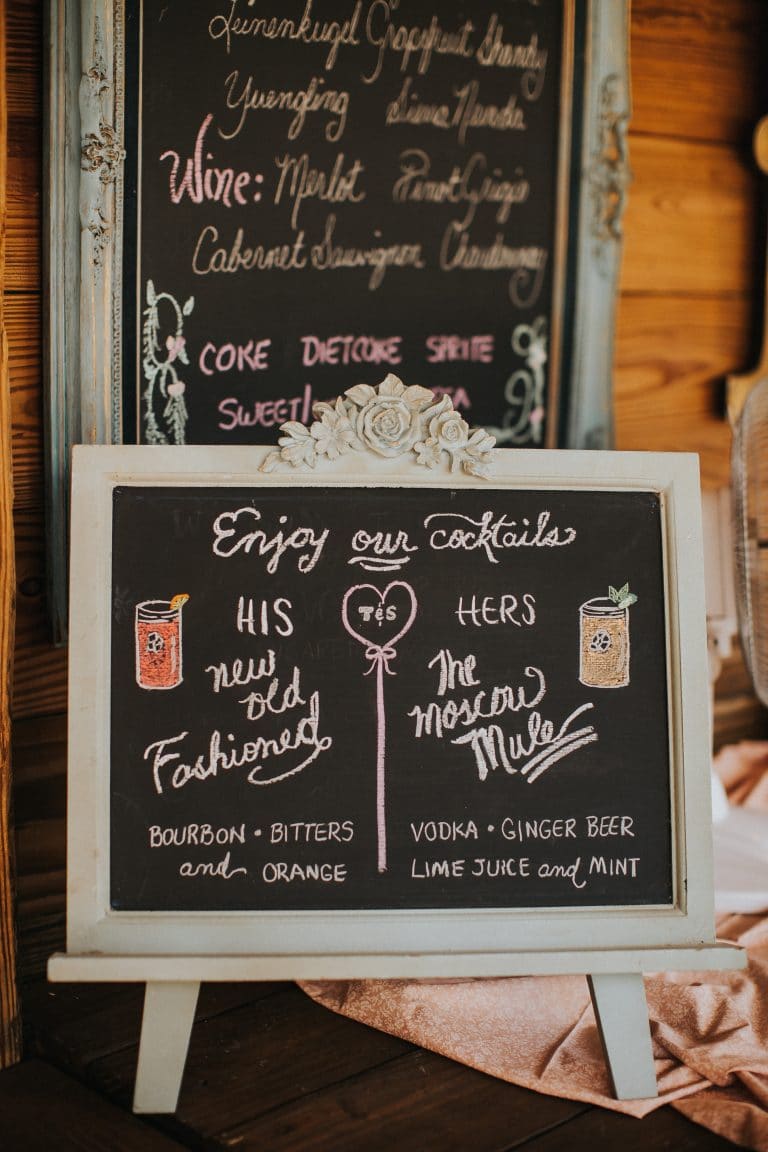 Leinenkugel Grapefruit Shandy
Yuengling Sierra Nevada
Wine: Merlot Pinot Grigio
Cabernet Sauvignon Chardonnay
COKE DIET COKE SPRITE
SWEET/
Enjoy our cocktails
HIS T&S HERS
new The
old Moscow
Fashioned Mule
BOURBON • BITTERS VODKA • GINGER BEER
and ORANGE LIME JUICE and MINT